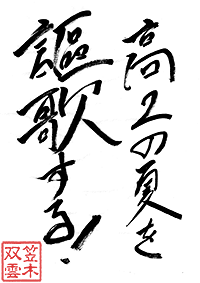 高2の夏を
謳歌する!
笠木
双雲